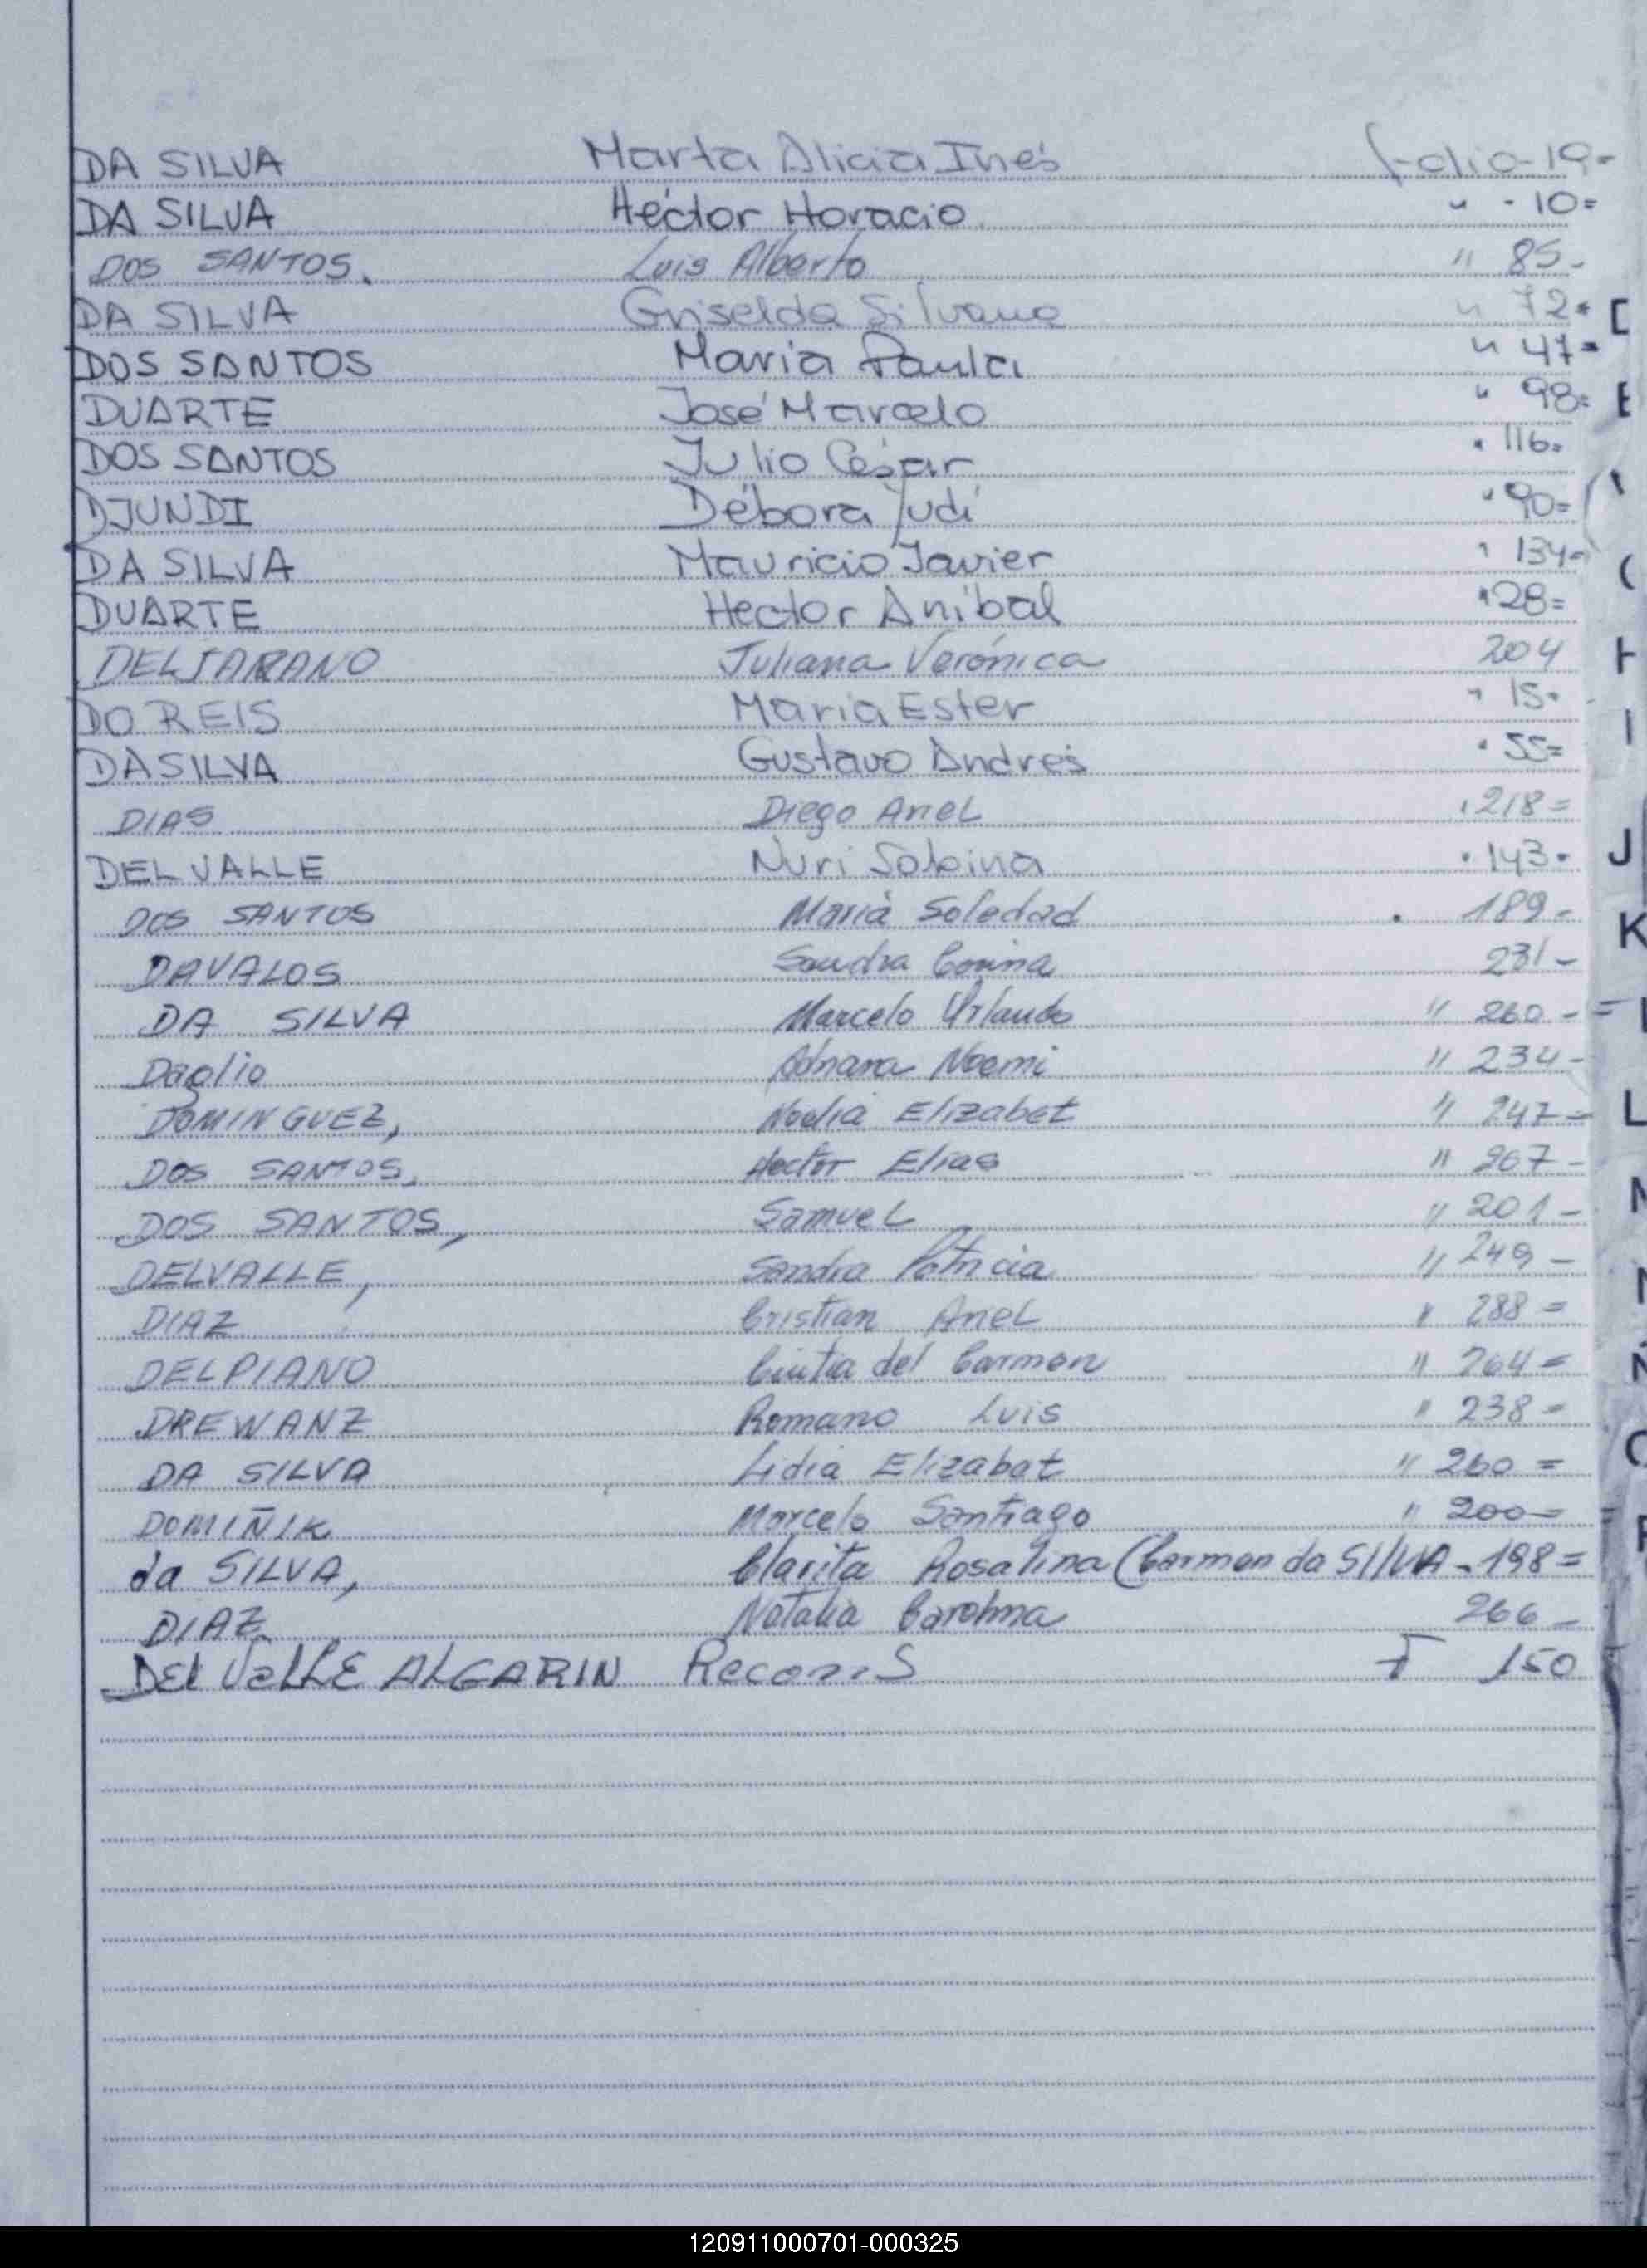 DA SILVA Marta Alicia Inés folio-19-
DA SILVA Héctor Horacio " - 10=
DOS SANTOS. Luis Alberto " 85-
DA SILVA Griselda Silvana " 72=
DOS SANTOS María Paula " 47=
DUARTE José Marcelo " 98=
DOS SANTOS Julio César " 116=
DJUNDI Débora Yudi " 90=
DA SILVA Mauricio Javier " 134=
DUARTE Hector Aníbal " 28=
DELTARANO Juliana Verónica 204
DO REIS María Ester " 15-
DA SILVA Gustavo Andrés " 55=
DIAS Diego Ariel " 218=
DEL VALLE Nuri Sabina " 143-
DOS SANTOS María Soledad " 189-
DAVALOS Sandra Corina 231-
DA SILVA Marcelo Orlando " 260-=
Daglio Adriana Noemi " 234-
DOMINGUEZ, Noelia Elizabet " 247=
DOS SANTOS, Hector Elias " 267-
DOS SANTOS, Samuel " 201-
DELVALLE, Sandra Patricia " 249-
DIAZ Cristian Ariel " 288=
DELPIANO Cintia del Carmen " 264=
DREWANZ Romano Luis " 238=
DA SILVA Lidia Elizabet " 260=
DOMIÑIK Marcelo Santiago " 200-=
da SILVA, Clarita Rosalina (Carmen da SIlVA - 198=
DIAZ Natalia Carolina 266-
DEl VallE ALGARIN F 150
J
K
L
120911000701-000325